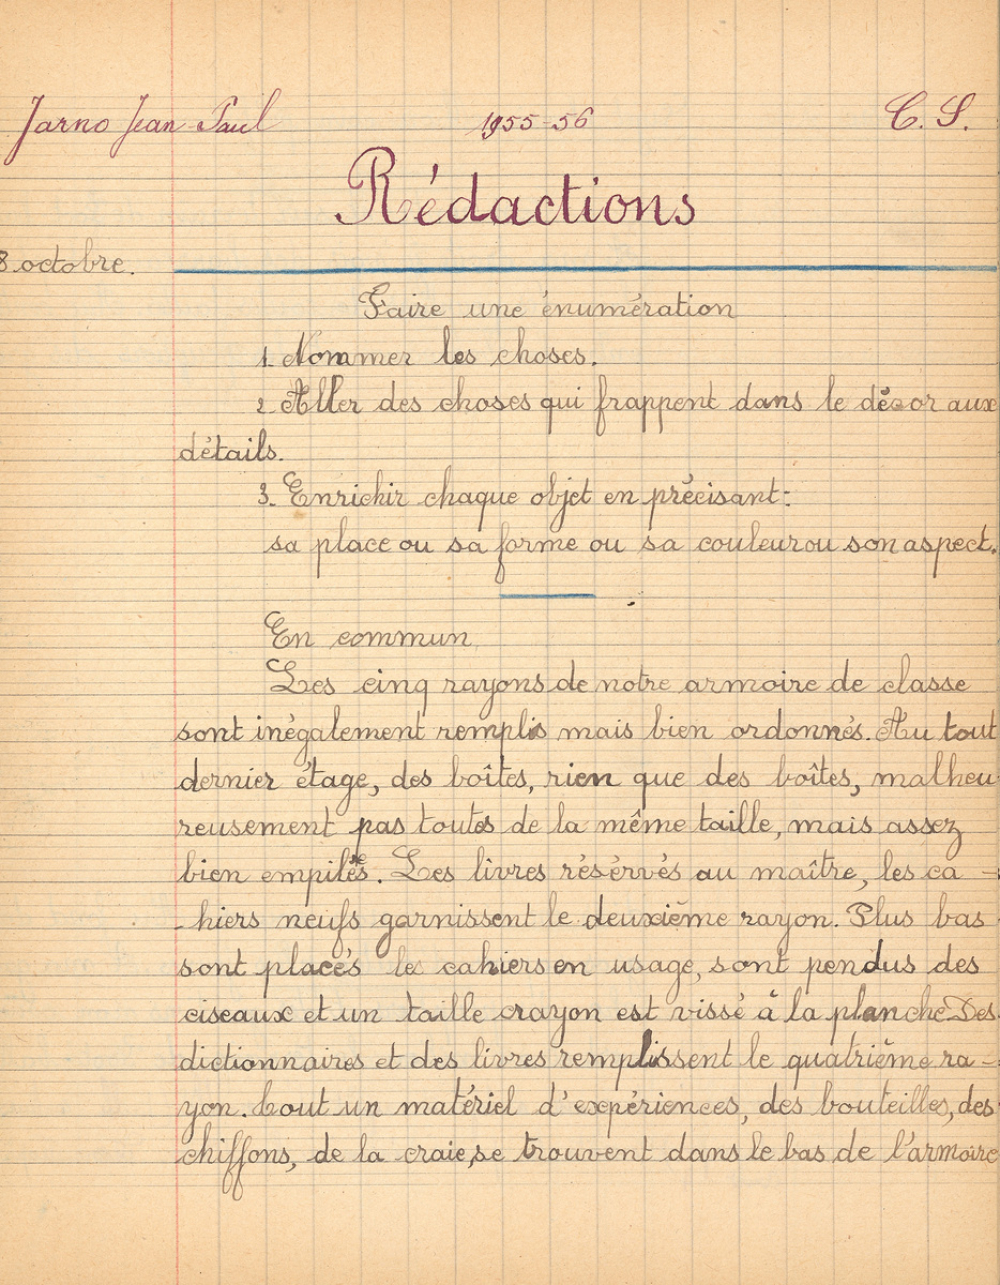 Jarno Jean-Paul 1955-56 C. S.
Rédactions
8 octobre.
Faire une énumération
1. Nommer les choses.
2 Aller des choses qui frappent dans le décor aux
détails.
3. Enrichir chaque objet en précisant:
sa place ou sa forme ou sa couleur ou son aspect.
En commun
Les cinq rayons de notre armoire de classe
sont inégalement remplis mais bien ordonnés. Au tout
dernier étage, des boîtes, rien que des boîtes, malheu
reusement pas toutes de la même taille, mais assez
bien empilées. Les livres résérvés au maître, les ca-
-hiers neufs garnissent le deuxième rayon. Plus bas
sont placés les cahiers en usage, sont pendus des
ciseaux et un taille crayon est vissé à la planche Des
dictionnaires et des livres remplissent le quatrième ra-
yon. Tout un matériel d'expériences, des bouteilles, des
chiffons, de la craie, se trouvent dans le bas de l'armoire